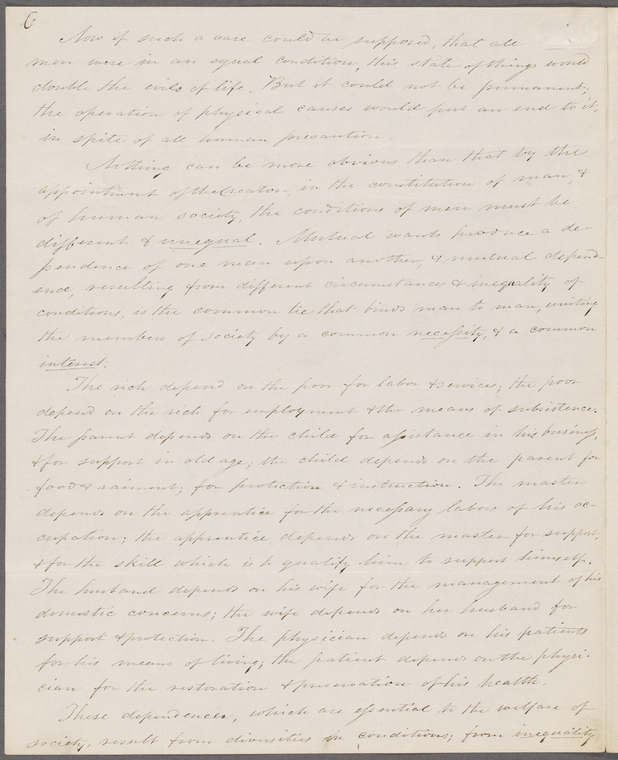 6
Now if such a case could be supposed, that all
men were in an equal condition, this state of things would
double the evils of life. But it could not be permanent;
the operation of physical causes would put an end to it,
in spite of all human precaution.
Nothing can be more obvious than that by the
appointment of the Creator, in the constitution of man, &
of human society, the conditions of men must be
different & unequal. Mutual wants produce a de-
pendence of one man upon another, & mutual depend-
ence, resulting from different circumstances & inequality of
conditions, is the common tie that binds man to man, uniting
the members of society by a common necessity, & a common
interest.
The rich depend on the poor for labor & services; the poor
depend on the rich for employment & the means of subsistence.
The parent depends on the child for assistance in his business,
& for support in old age; the child depends on the parent for
food & raiment; for protection & instruction. The master
depends on the apprentice for the necessary labors of his oc-
cupation; the apprentice depends on the master for support,
& for the skill which is to qualify him to support himself.
The husband depends on his wife for the management of his
domestic concerns; the wife depends on her husband for
support & protection. The physician depends on his patients
for his means of living; the patient depends on the physi-
cian for the restoration & preservation of his health.
These dependences, which are essential to the welfare of
society, result from diversities in conditions; from inequality